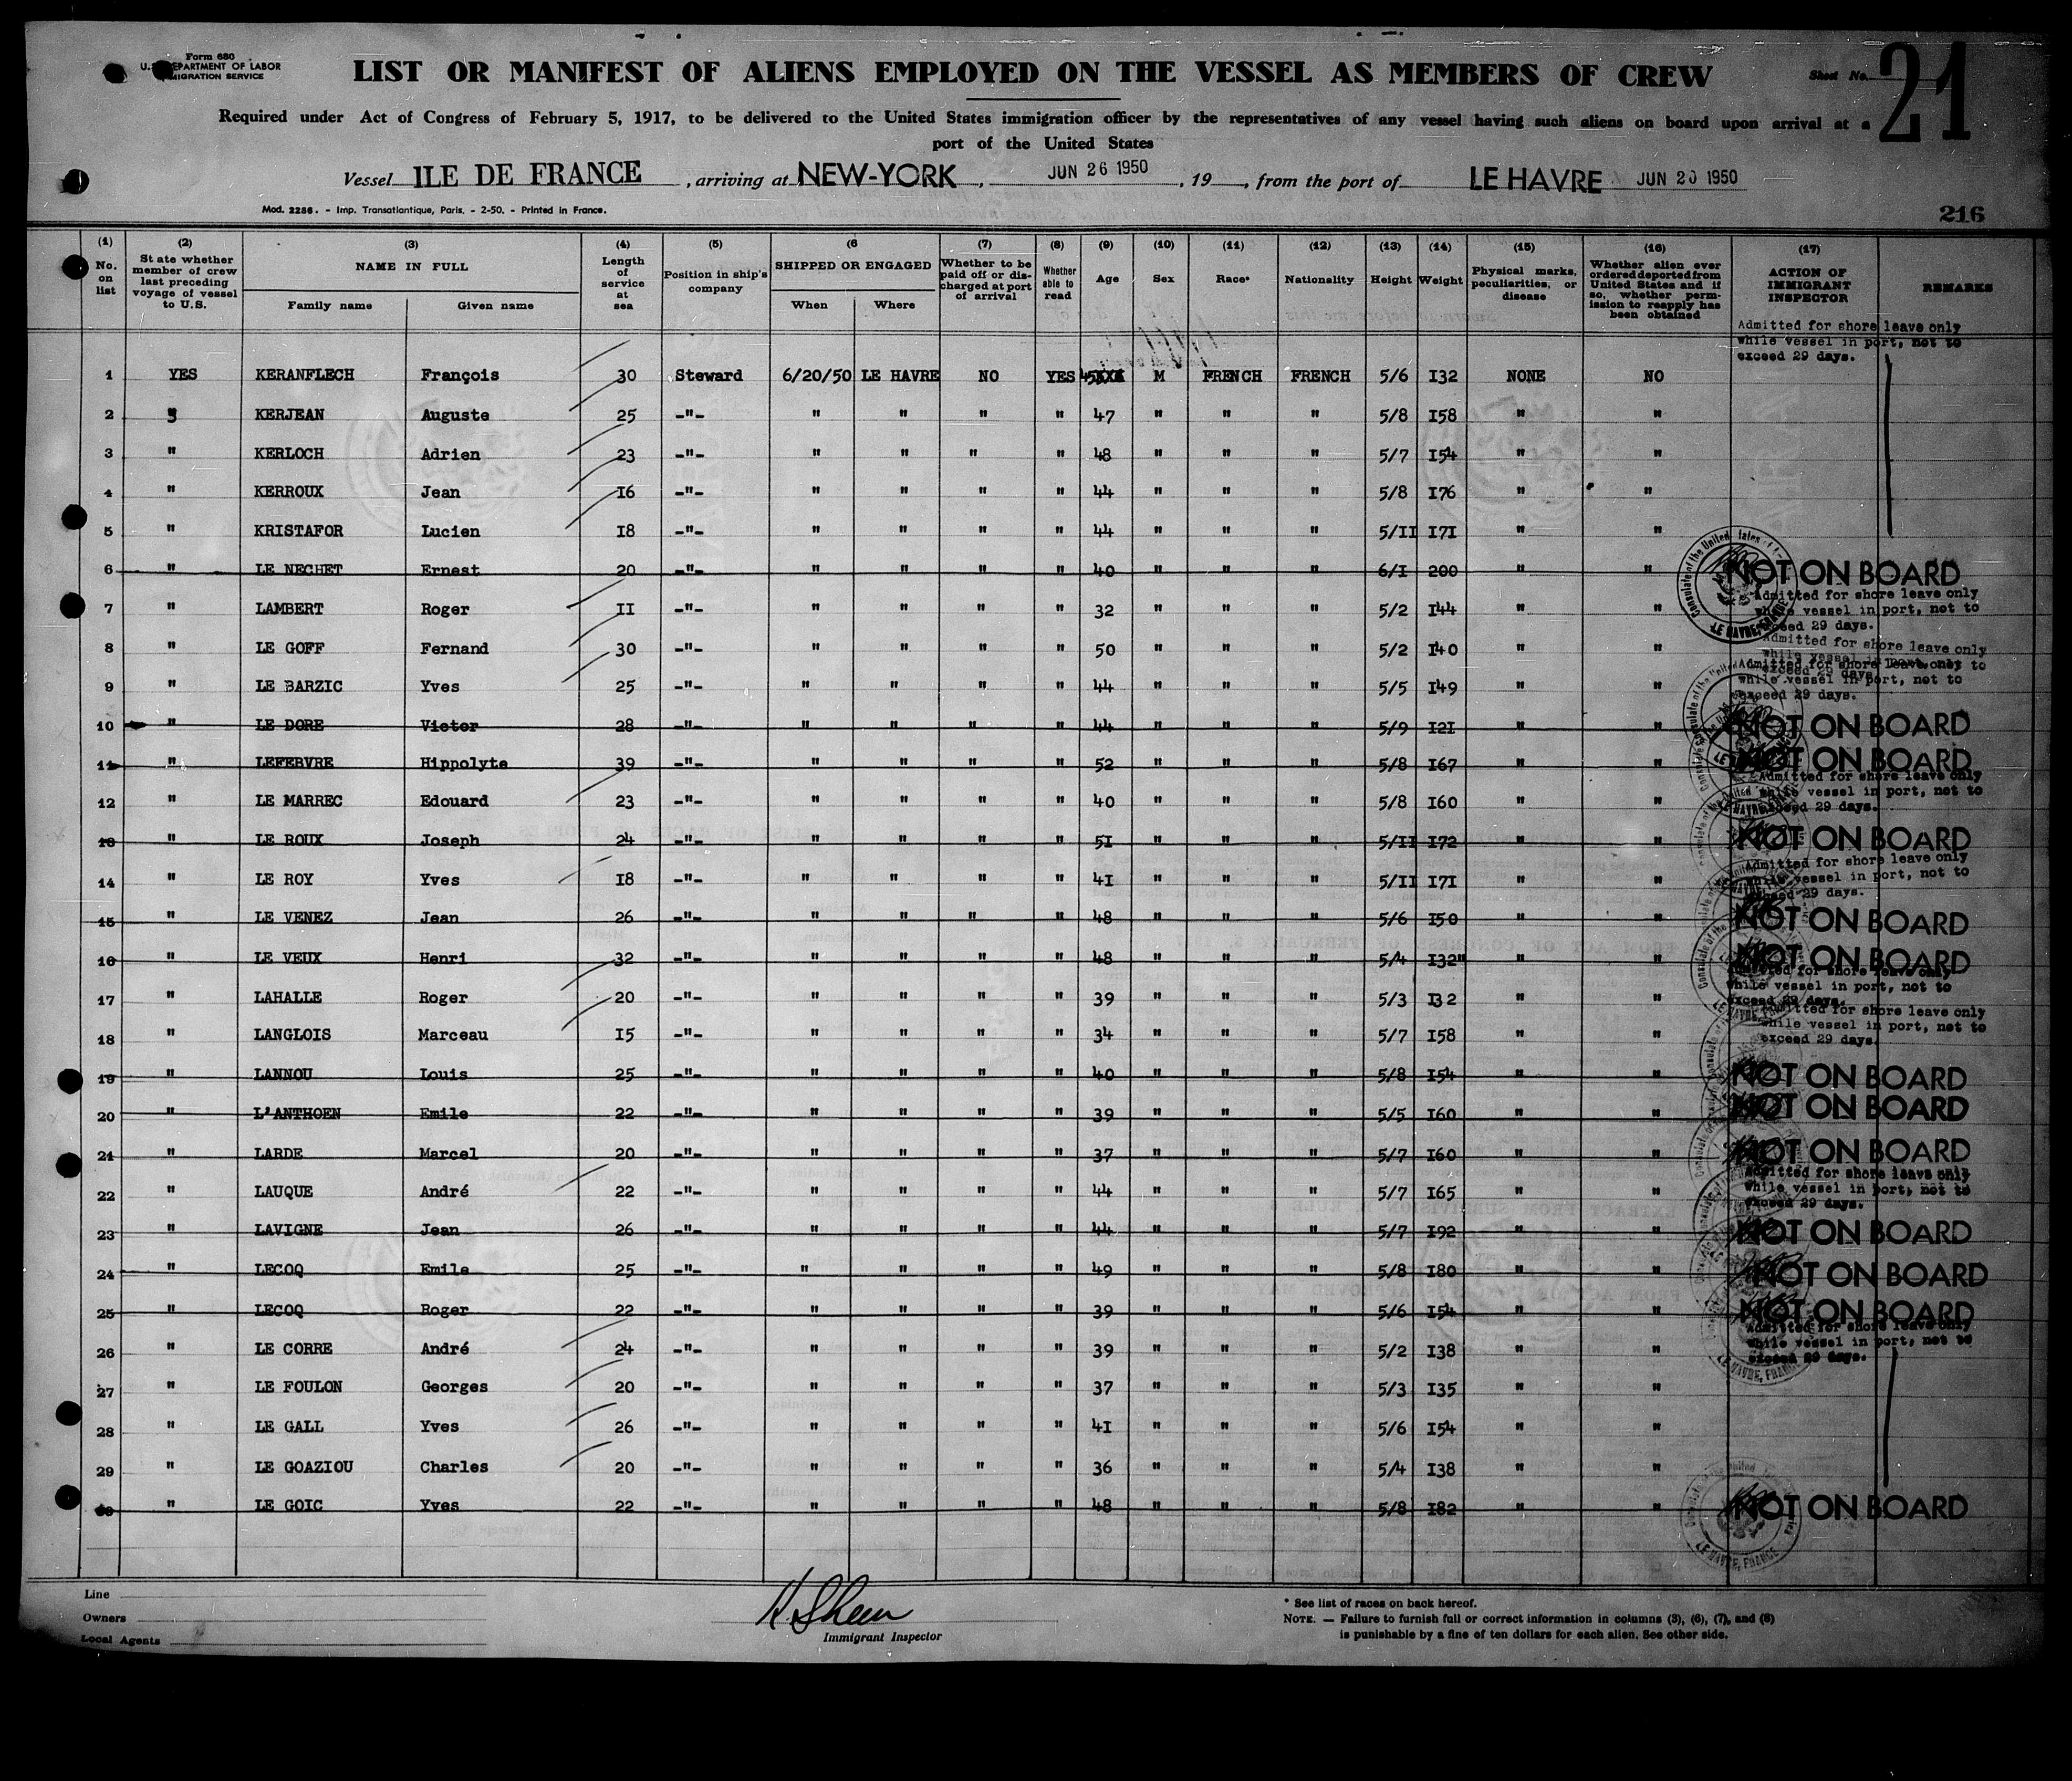 Form 680
U. S. DEPARTMENT OF LABOR
IMMIGRATION SERVICE
LIST OR MANIFEST OF ALIENS EMPLOYED ON THE VESSEL AS MEMBERS OF CREW
Sheet No. 21
Required under Act of Congress of February 5, 1917, to be delivered to the United States immigration officer by the representatives of any vessel having such aliens on board upon arrival at a
port of the United States
Vessel ILE DE FRANCE, arriving at NEW-YORK, JUN 26 1950, 19, from the port of LE HAVRE JUN 20 1950
Mod. 2286. - Imp. Transatlantique, Paris. - 2-50. - Printed in France.
216
(1) No. on list
(2) State whether member of crew last preceding voyage of vessel to U.S.
(3) NAME IN FULL Family name Given name
(4) Length of service at sea
(5) Position in ship's company
(6 SHIPPED OR ENGAGED When Where
(7) Whether to be paid off or discharged at port of arrival
(8) Whether able to read
(9) Age
(10) Sex
(11) Race*
(12) Nationality
(13) Height
(14) Weight
(15) Physical marks, peculiarities, or disease
(16) Whether alien ever ordered deported from United States and if so, whether permission to reapply has been obtained
(17) ACTION OF IMMIGRANT INSPECTOR
REMARKS
Admitted for shore leave only
while vessel in port, not to
exceed 29 days.
1 YES KERANFLECH François 30 Steward 6/20/50 LE HAVRE NO YES 45 M FRENCH FRENCH 5/6 I32 NONE NO
2 " KERJEAN Auguste 25 -"- " " " " 47 " " " 5/8 I58 " "
3 " KERLOCH Adrien 23 -"- " " " " 48 " " " 5/7 I54 " "
4 " KERROUX Jean I6 -"- " " " " 44 " " " 5/8 I76 " "
5 " KRISTAFOR Lucien I8 -"- " " " " 44 " " " 5/II I7I " "
6 " LE NECHET Ernest 20 -"- " " " " 40 " " " 6/I 200 " " NOT ON BOARD
7 " LAMBERT Roger II -"- " " " " 32 " " " 5/2 I44 " " Admitted for shore leave only while vessel in port, not to exceed 29 days.
8 " LE GOFF Fernand 30 -"- " " " " 50 " " " 5/2 I40 " " Admitted for shore leave only while vessel in port, not to exceed 29 days.
9 " LE BARZIC Yves 25 -"- " " " " 44 " " " 5/5 I49 " " Admitted for shore leave only while vessel in port, not to exceed 29 days.
10 " LE DORE Victor 28 -"- " " " " 44 " " " 5/9 I2I " " NOT ON BOARD
11 " LEFEBVRE Hippolyte 39 -"- " " " " 52 " " " 5/8 I67 " " NOT ON BOARD
12 " LE MARREC Edouard 23 -"- " " " " 40 " " " 5/8 I60 " " Admitted for shore leave only while vessel in port, not to exceed 29 days.
13 " LE ROUX Joseph 24 -"- " " " " 5I " " " 5/II I72 " " NOT ON BOARD
14 " LE ROY Yves I8 -"- " " " " 4I " " " 5/II I7I " " Admitted for shore leave only while vessel in port, not to exceed 29 days.
15 " LE VENEZ Jean 26 -"- " " " " 48 " " " 5/6 I50 " " NOT ON BOARD
16 " LE VEUX Henri 32 -"- " " " " 48 " " " 5/4 I32" " " NOT ON BOARD
17 " LAHALLE Roger 20 -"- " " " " 39 " " " 5/3 I32 " " Admitted for shore leave only while vessel in port, not to exceed 29 days.
18 " LANGLOIS Marceau I5 -"- " " " " 34 " " " 5/7 I58 " " Admitted for shore leave only while vessel in port, not to exceed 29 days.
19 " LANNOU Louis 25 -"- " " " " 40 " " " 5/8 I54 " " NOT ON BOARD
20 " L'ANTHOEN Emile 22 -"- " " " " 39 " " " 5/5 I60 " " NOT ON BOARD
21 " LARDE Marcel 20 -"- " " " " 37 " " " 5/7 I60 " " NOT ON BOARD
22 " LAUQUE André 22 -"- " " " " 44 " " " 5/7 I65 " " Admitted for shore leave only while vessel in port, not to exceed 29 days.
23 " LAVIGNE Jean 26 -"- " " " " 44 " " " 5/7 I92 " " NOT ON BOARD
24 " LECOQ Emile 25 -"- " " " " 49 " " " 5/8 I80 " " NOT ON BOARD
25 " LECOQ Roger 22 -"- " " " " 39 " " " 5/6 I54 " " NOT ON BOARD
26 " LE CORRE André 24 -"- " " " " 39 " " " 5/2 I38 " " Admitted for shore leave only while vessel in port, not to exceed 29 days.
27 " LE FOULON Georges 20 -"- " " " " 37 " " " 5/3 I35 " "
28 " LE GALL Yves 26 -"- " " " " 4I " " " 5/6 I54 " "
29 " LE GOAZIOU Charles 20 -"- " " " " 36 " " " 5/4 I38 " "
30 " LE GOIC Yves 22 -"- " " " " 48 " " " 5/8 I82 " " NOT ON BOARD
LE HAVRE, FRANCE
Line
Owners
Local Agents
Immigrant Inspector
* See list of races on back hereof.
NOTE. — Failure to furnish full or correct information in columns (3), (6), (7), and (8)
is punishable by a fine of ten dollars for each alien. See other side.